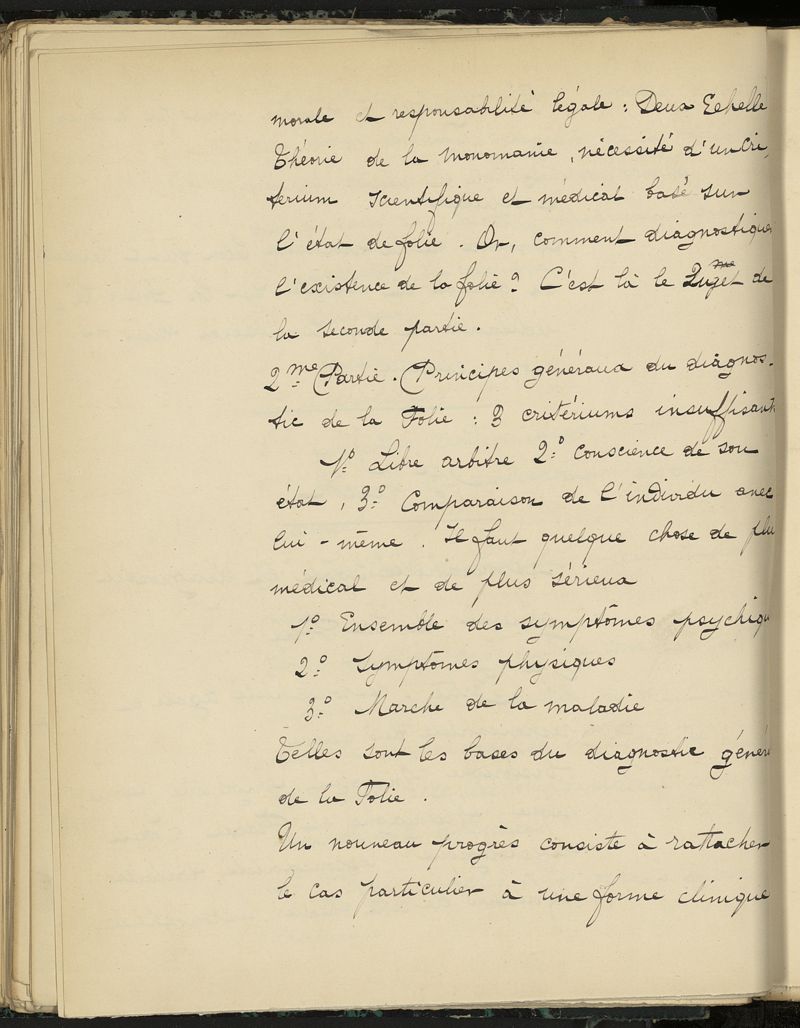 morale et responsabilité légale : Deux Echelle
Théorie de la monomanie, nécessité d'un Cri,
terium scientifique et médical basé sur
l'état de folie. Or, comment diagnostiquer
l'existence de la folie ? C'est là le de
la seconde partie.
2me Partie. Principes généraux du diagnos-
tic de la Folie : 3 critériums insuffisants
1o Libre arbitre 2o Conscience de son
état, 3o Comparaison de l'individu avec
lui-même. Il faut quelque chose de plu
médical et de plus sérieux
1o Ensemble des symptômes psychiqu
2o Symptômes physiques
3o Marche de la maladie
Telles sont les bases du diagnostic génér
de la Folie.
Un nouveau progrès consiste à rattacher
le cas particulier à une forme clinique